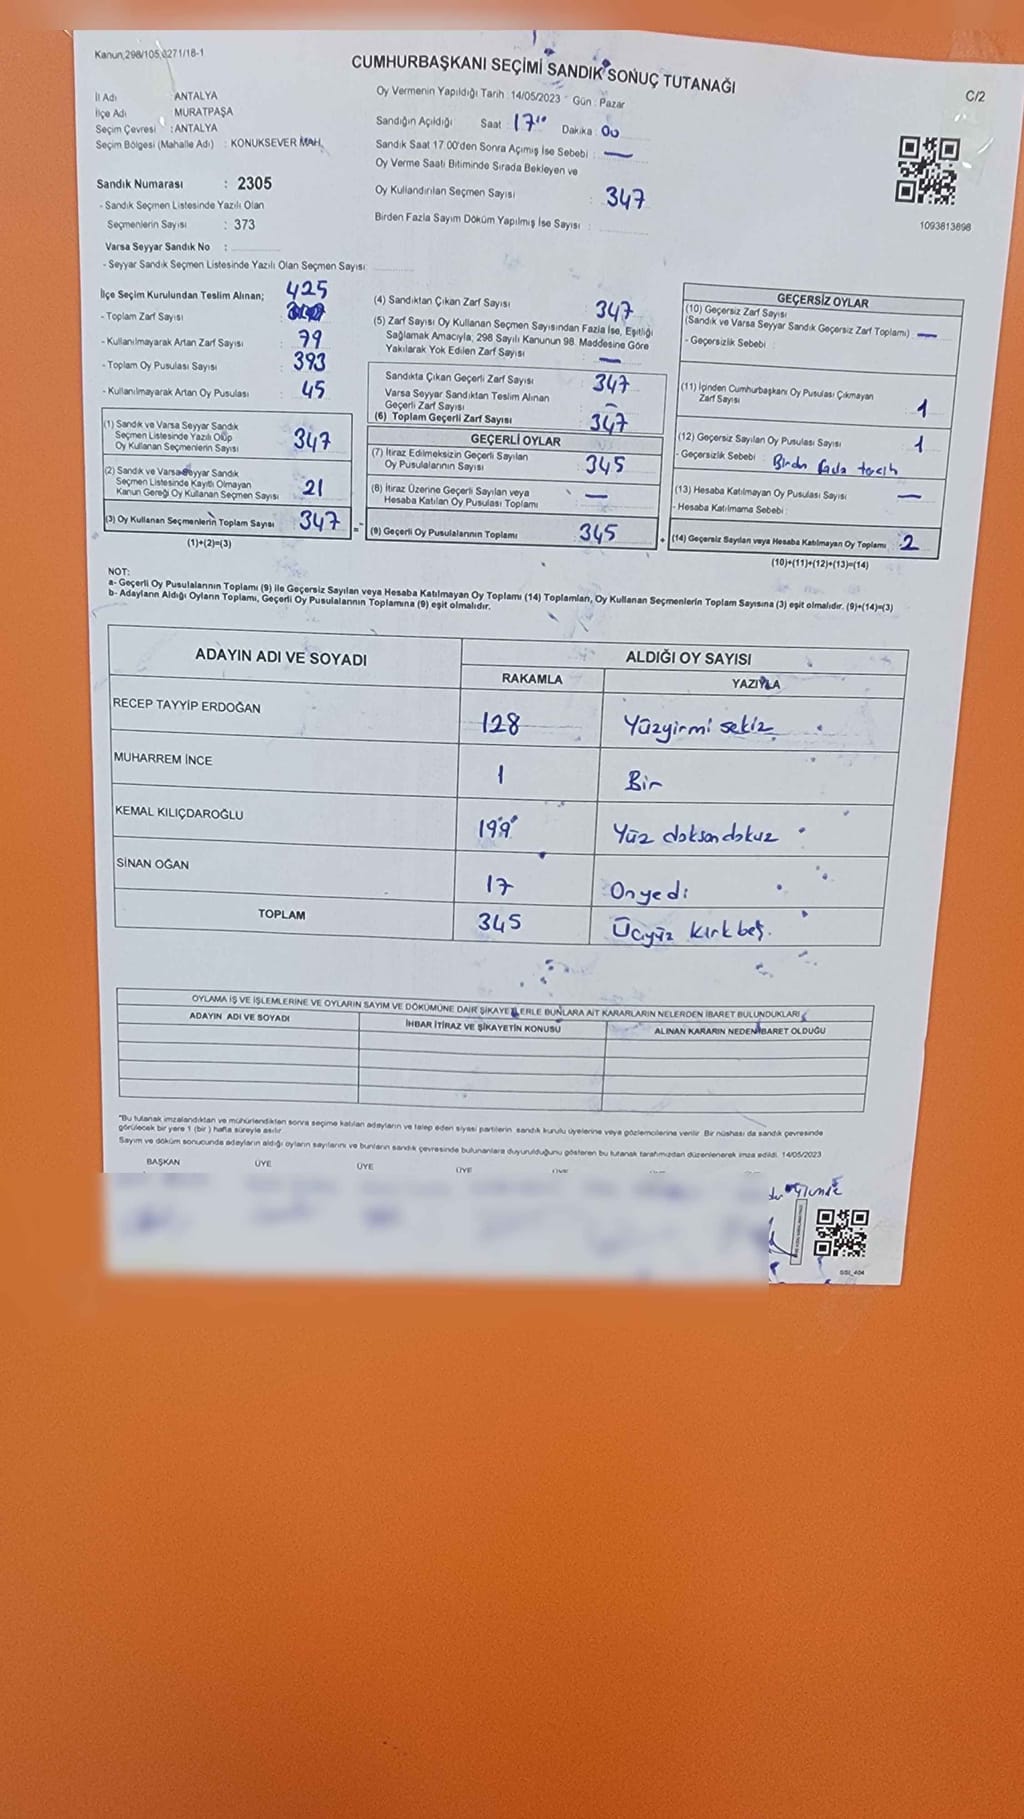 Kanun;298/105,6271/18-1
CUMHURBAŞKANI SEÇİMİ SANDIK SONUÇ TUTANAĞI
C/2
İl Adı ANTALYA
İlçe Adı MURATPAŞA
Seçim Çevresi : ANTALYA
Seçim Bölgesi (Mahalle Adı) : KONUKSEVER MAH.
Oy Vermenin Yapıldığı Tarih : 14/05/2023 Gün : Pazar
Sandığın Açıldığı Saat : 17 Dakika : 00
Sandık Saat 17.00'den Sonra Açımış İse Sebebi : —
Oy Verme Saati Bitiminde Sırada Bekleyen ve
Oy Kullandırılan Seçmen Sayısı : 347
Birden Fazla Sayım Döküm Yapılmış İse Sayısı :
1093813898
Sandık Numarası : 2305
- Sandık Seçmen Listesinde Yazılı Olan
Seçmenlerin Sayısı : 373
Varsa Seyyar Sandık No :
- Seyyar Sandık Seçmen Listesinde Yazılı Olan Seçmen Sayısı:
İlçe Seçim Kurulundan Teslim Alınan; 425
- Toplam Zarf Sayısı :
- Kullanılmayarak Artan Zarf Sayısı : 79
- Toplam Oy Pusulası Sayısı : 393
- Kullanılmayarak Artan Oy Pusulası : 45
(1) Sandık ve Varsa Seyyar Sandık
Seçmen Listesinde Yazılı Olup
Oy Kullanan Seçmenlerin Sayısı 347
(2) Sandık ve Varsa Seyyar Sandık
Seçmen Listesinde Kayıtlı Olmayan
Kanun Gereği Oy Kullanan Seçmen Sayısı 21
(3) Oy Kullanan Seçmenlerin Toplam Sayısı 347
(1)+(2)=(3)
(4) Sandıktan Çıkan Zarf Sayısı : 347
(5) Zarf Sayısı Oy Kullanan Seçmen Sayısından Fazla İse, Eşitliği
Sağlamak Amacıyla; 298 Sayılı Kanunun 98. Maddesine Göre
Yakılarak Yok Edilen Zarf Sayısı : —
Sandıkta Çıkan Geçerli Zarf Sayısı : 347
Varsa Seyyar Sandıktan Teslim Alınan
Geçerli Zarf Sayısı : —
(6) Toplam Geçerli Zarf Sayısı : 347
GEÇERLİ OYLAR
(7) İtiraz Edilmeksizin Geçerli Sayılan
Oy Pusulalarının Sayısı : 345
(8) İtiraz Üzerine Geçerli Sayılan veya
Hesaba Katılan Oy Pusulası Toplamı : —
= (9) Geçerli Oy Pusulalarının Toplamı : 345
GEÇERSİZ OYLAR
(10) Geçersiz Zarf Sayısı
(Sandık ve Varsa Seyyar Sandık Geçersiz Zarf Toplamı) : —
- Geçersizlik Sebebi :
(11) İçinden Cumhurbaşkanı Oy Pusulası Çıkmayan
Zarf Sayısı : 1
(12) Geçersiz Sayılan Oy Pusulası Sayısı : 1
- Geçersizlik Sebebi : Birden fazla tercih
(13) Hesaba Katılmayan Oy Pusulası Sayısı : —
- Hesaba Katılmama Sebebi :
+ (14) Geçersiz Sayılan veya Hesaba Katılmayan Oy Toplamı : 2
(10)+(11)+(12)+(13)=(14)
NOT:
a- Geçerli Oy Pusulalarının Toplamı (9) ile Geçersiz Sayılan veya Hesaba Katılmayan Oy Toplamı (14) Toplamları, Oy Kullanan Seçmenlerin Toplam Sayısına (3) eşit olmalıdır. (9)+(14)=(3)
b- Adayların Aldığı Oyların Toplamı, Geçerli Oy Pusulalarının Toplamına (9) eşit olmalıdır.
ADAYIN ADI VE SOYADI
ALDIĞI OY SAYISI
RAKAMLA YAZIYLA
RECEP TAYYİP ERDOĞAN 128 Yüzyirmi sekiz
MUHARREM İNCE 1 Bir
KEMAL KILIÇDAROĞLU 199 Yüz doksan dokuz
SİNAN OĞAN 17 Onyedi
TOPLAM 345 Üçyüz kırk beş.
OYLAMA İŞ VE İŞLEMLERİNE VE OYLARIN SAYIM VE DÖKÜMÜNE DAİR ŞİKAYETLERLE BUNLARA AİT KARARLARIN NELERDEN İBARET BULUNDUKLARI
ADAYIN ADI VE SOYADI İHBAR İTİRAZ VE ŞİKAYETİN KONUSU ALINAN KARARIN NEDEN İBARET OLDUĞU
"Bu tutanak imzalandıktan ve mühürlendikten sonra seçime katılan adayların ve talep eden siyasi partilerin sandık kurulu üyelerine veya gözlemcilerine verilir. Bir nüshası da sandık çevresinde
görülecek bir yere 1 (bir) hafta süreyle asılır.
Sayım ve döküm sonucunda adayların aldığı oyların sayılarını ve bunların sandık çevresinde bulunanlara duyurulduğunu gösteren bu tutanak tarafımızdan düzenlenerek imza edildi. 14/05/2023
BAŞKAN ÜYE ÜYE ÜYE ÜYE
GSI_404